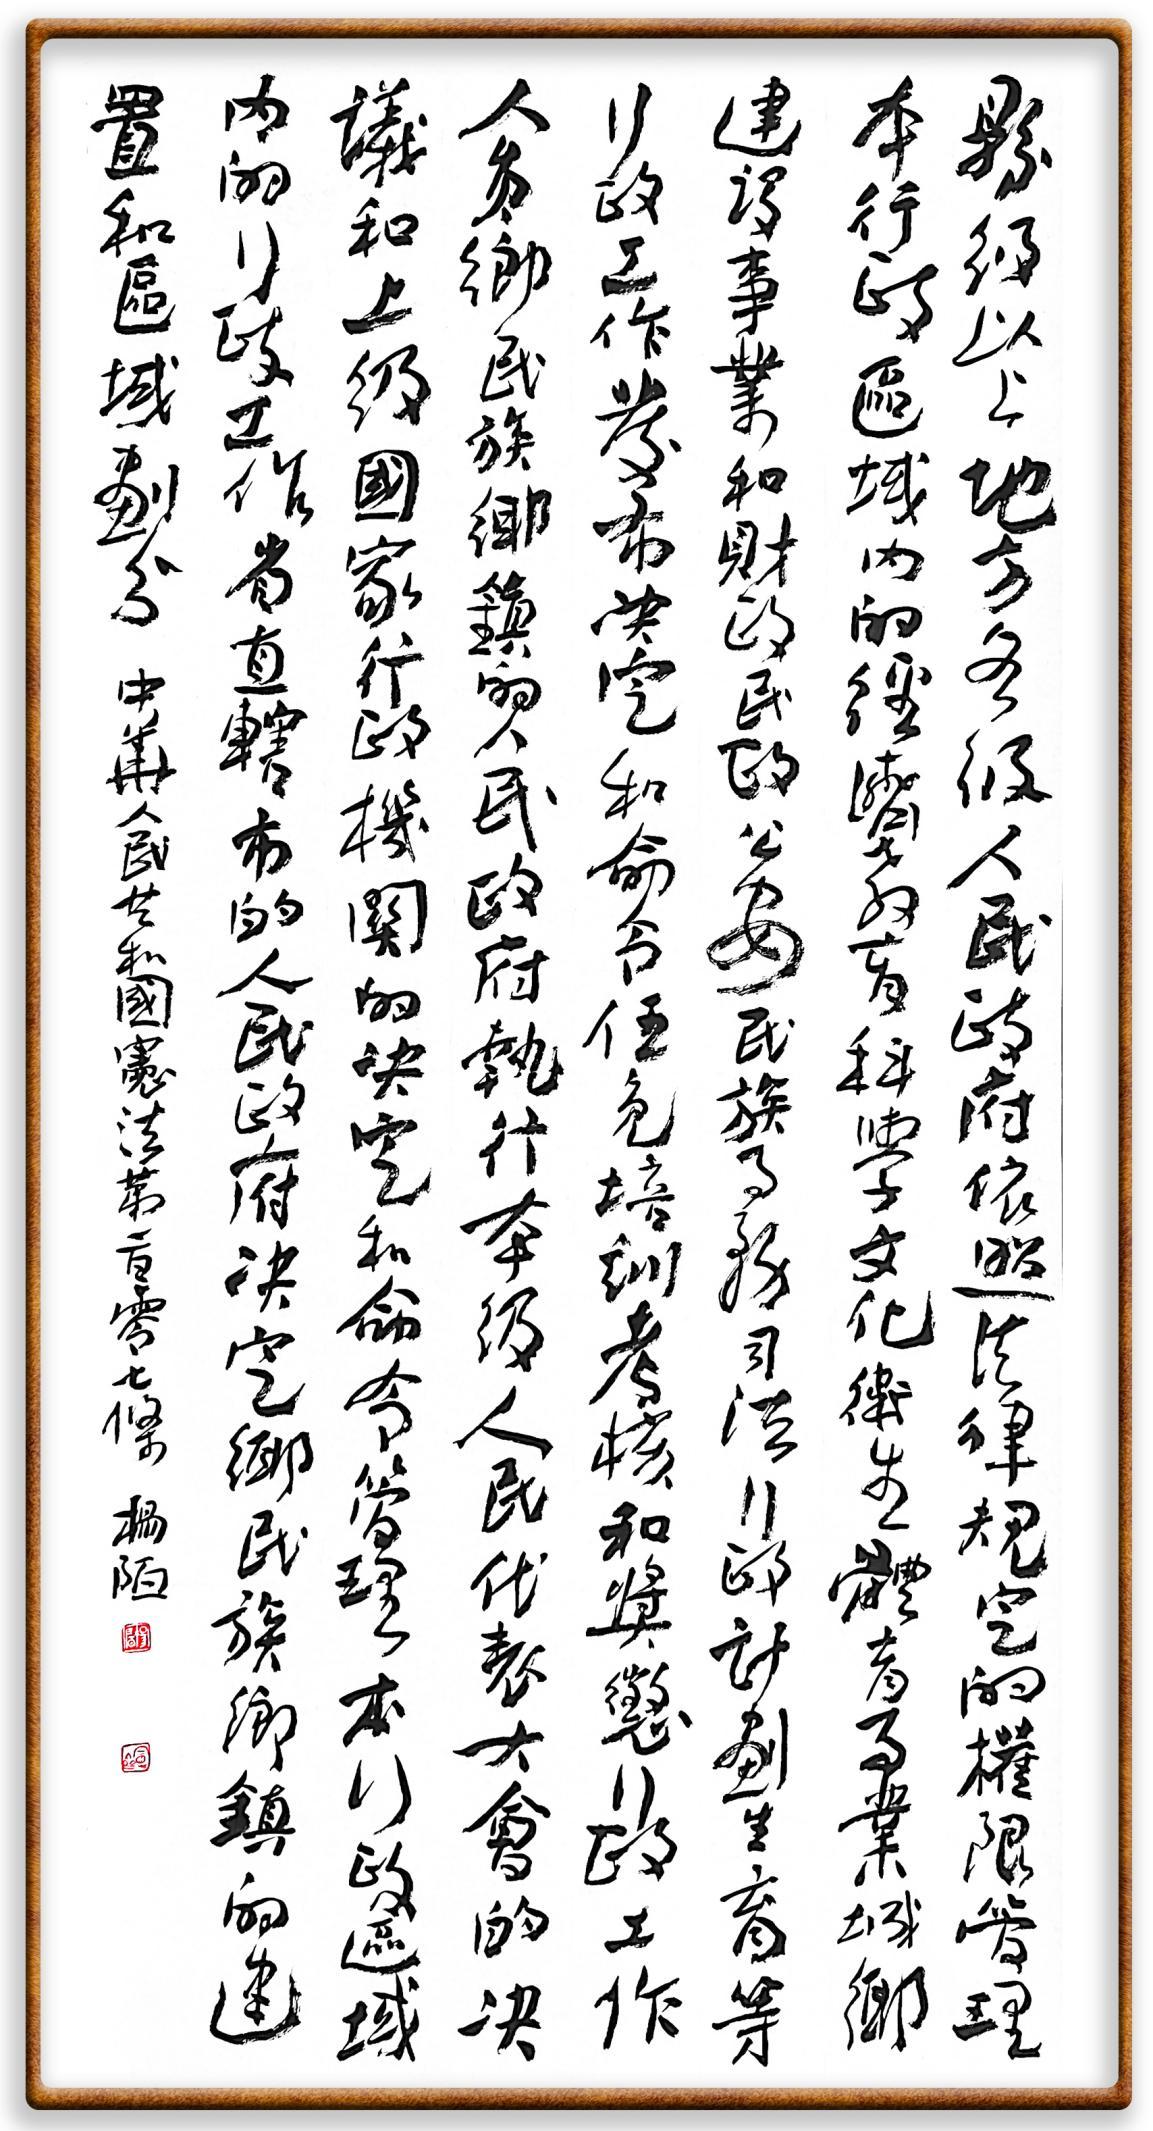 縣級以上地方各級人民政府依照法律規定的權限管理
本行政區域内的經濟教育科學文化衛生體育事業城鄉
建設事業和財政民政公安民族事務司法行政計劃生育等
行政工作發布决定和命令任免培訓考核和獎懲行政工作
人員鄉民族鄉鎮的人民政府執行本級人民代表大會的决
議和上級國家行政機關的决定和命令管理本行政區域
内的行政工作省直轄市的人民政府决定鄉民族鄉鎮的建
置和區域劃分 中華人民共和國憲法第一百零七條 楊